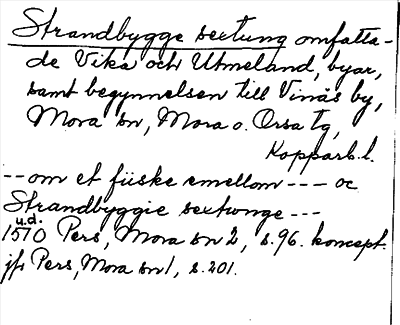 Strandbygge sextung omfatta-
de Vika och Utmeland, byar,
samt begynnelsen till Vinäs by,
Mora sn, Mora o. Orsa tg,
Kopparb. l.
-- om et fiiske emellom --- oc
Strandbyggie sextunge ---
u.d.
1570 Pers, Mora sn 2, s. 96. koncept.
jfr Pers, Mora sn 1, s. 201.